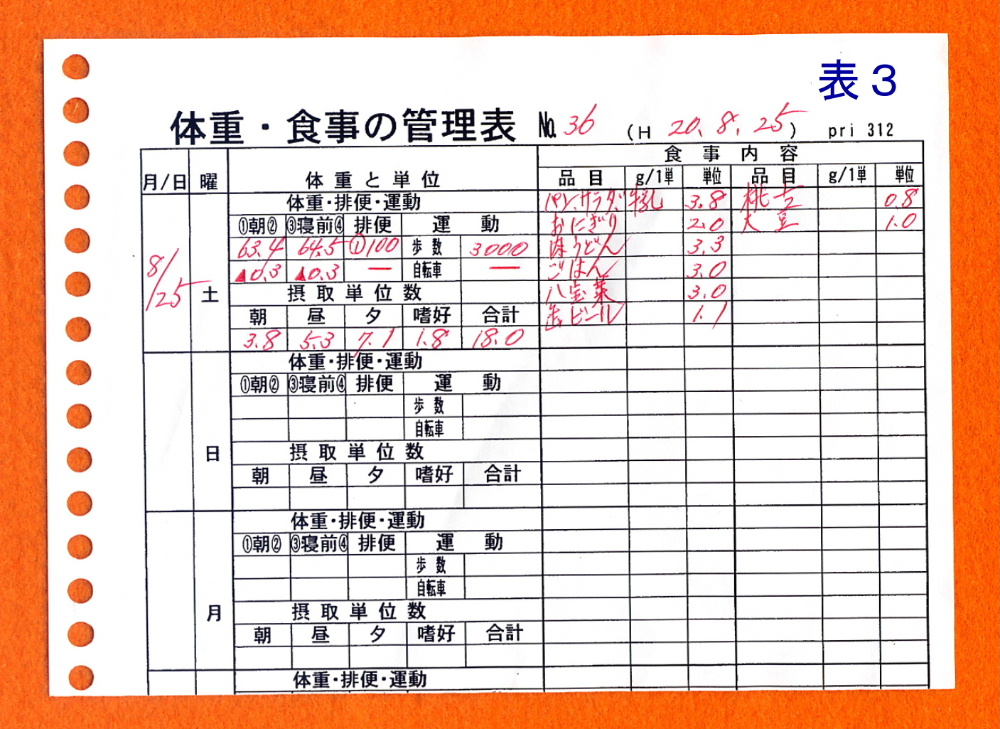 表3
体重・食事の管理表 No. 36 (H 20. 8. 25) pri 312
月/日 曜 体重と単位 食事内容
品目 g/1単 単位 品目 g/1単 単位
8/25 土
体重・排便・運動
①朝② ③寝前④ 排便 運動
63.4 64.5 ①100 歩数 3000
▲0.3 ▲0.3 ー 自転車 ー
摂取単位数
朝 昼 夕 嗜好 合計
3.8 5.3 7.1 1.8 18.0
パン、サラダ、牛乳 3.8 桃 0.8
おにぎり 2.0 大豆 1.0
肉うどん 3.3
ごはん 3.0
八宝菜 3.0
缶ビール 1.1
日
体重・排便・運動
①朝② ③寝前④ 排便 運動
歩数
自転車
摂取単位数
朝 昼 夕 嗜好 合計
月
体重・排便・運動
①朝② ③寝前④ 排便 運動
歩数
自転車
摂取単位数
朝 昼 夕 嗜好 合計
体重・排便・運動